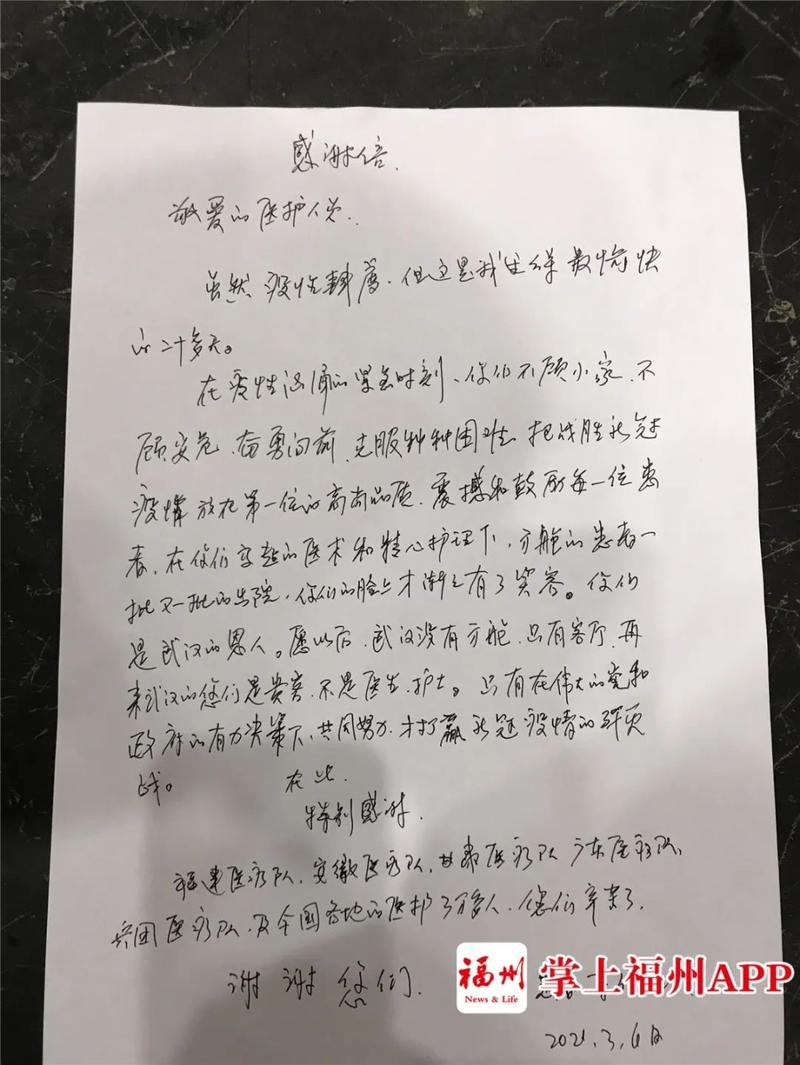 感谢信.
敬爱的医护人员.
虽然疫性肆虐.但这是我生命最愉快
的二十多天。
在疫性汹涌的紧急时刻、你们不顾小家.不
顾安危.奋勇向前.克服种种困难.把战胜新冠
疫情放在第一位的高尚品质.震撼和鼓励每一位患
者.在你们高超的医术和精心护理下,方舱的患者一
批又一批的出院,你们的脸上才渐之有了笑容。你们
是武汉的恩人。愿以后.武汉没有方舱.只有客厅.再
来武汉的您们是贵客.不是医生.护士。只有在伟大的党和
政府的有力决策下、共同努力.才打赢新冠疫情的
战。 在此.
特别感谢.
福建医疗队.安徽医疗队.甘肃医疗队 广东医疗队.
兵团医疗队.及全国各地的医护3万多人.您们辛苦了.
谢谢您们.
福州 News & Life 掌上福州APP
3.6日